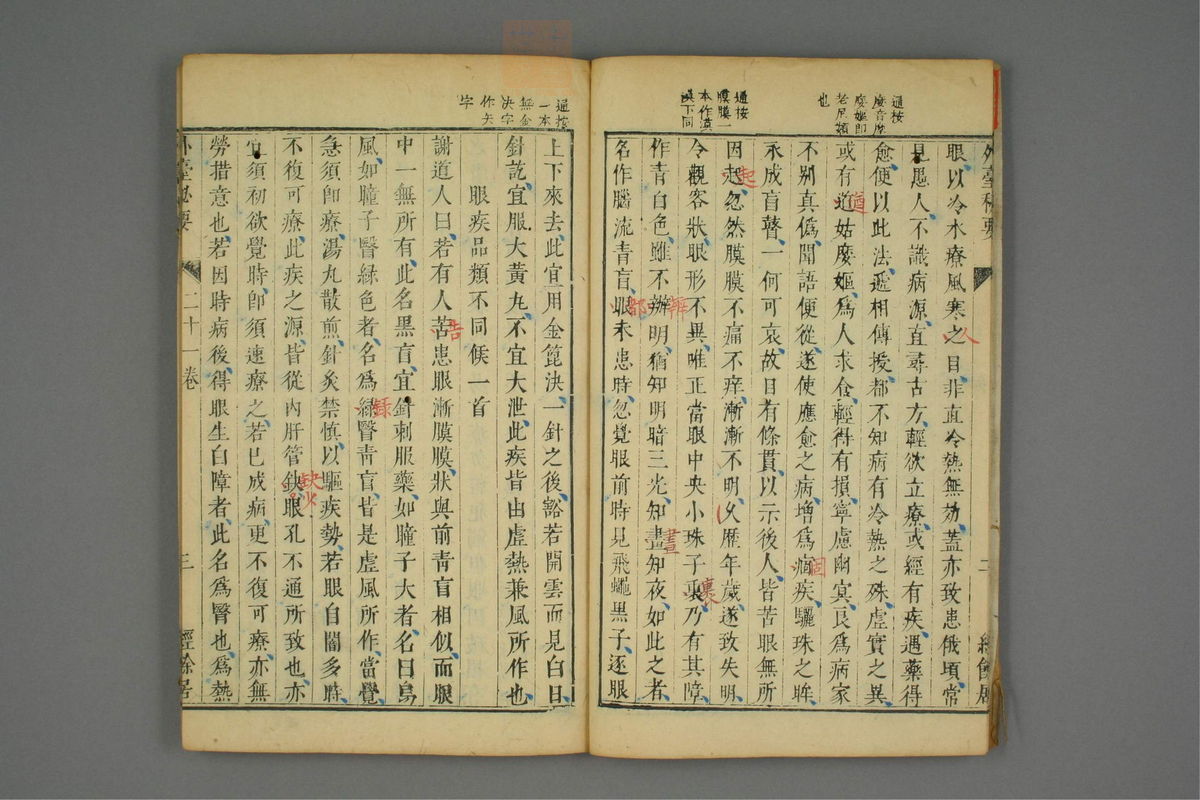 通按
廢音麼
廢嫗即
老尼類
也
通按
膜膜一
本作漠
漠下同
外臺秘要
眼以冷水療風寒之目非直冷熱無効蓋亦致患俄頃常
見愚人不識病源直尋古方輕欲立療或經有疾遇藥得
愈便以此法遞相傳授都不知病有冷熱之殊虛實之異
或有道姑廢嫗爲人求食輕得有損寧慮幽冥良爲病家
不别真僞聞語便從遂使應愈之病增爲痼疾驪珠之眸
永成盲瞽一何可哀故目有條貫以示後人皆苦眼無所
因起忽然膜膜不痛不痒漸漸不明久歷年歲遂致失明
令觀容狀眼形不異唯正當眼中央小珠子裏乃有其障
作青白色雖不辨明猶知明暗三光知晝知夜如此之者
名作腦流青盲眼未患時忽覺眼前時見飛蠅黒子逐眼
道
人
起
辨
都
晝
痼
裏
二
經餘居
通按
一本
無金
决字
作矢
字
上下來去此宜用金箆決一針之後豁若開雲而見白日
針訖宜服大黃丸不宜大泄此疾皆由虛熱兼風所作也
眼疾品類不同候一首
謝道人曰若有人苦患眼漸膜膜狀與前青盲相似而眼
中一無所有此名黒盲宜針刺服藥如瞳子大者名曰烏
風如瞳子瞖緑色者名爲緑瞖青盲皆是虛風所作當覺
急須即療湯丸散煎針灸禁慎以驅疾勢若眼自闇多時
不復可療此疾之源皆從内肝管缺眼孔不通所致也亦
宜須初欲覺時即須速療之若已成病更不復可療亦無
勞措意也若因時病後得眼生白障者此名爲瞖也爲熱
告
緑
缺
外臺秘要
二十一卷
三
經餘居